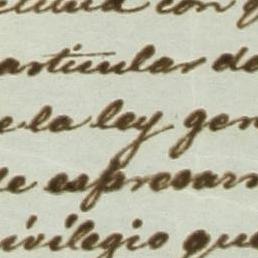 con
articular de
e la ley gen
de espresarn
ivilegio que